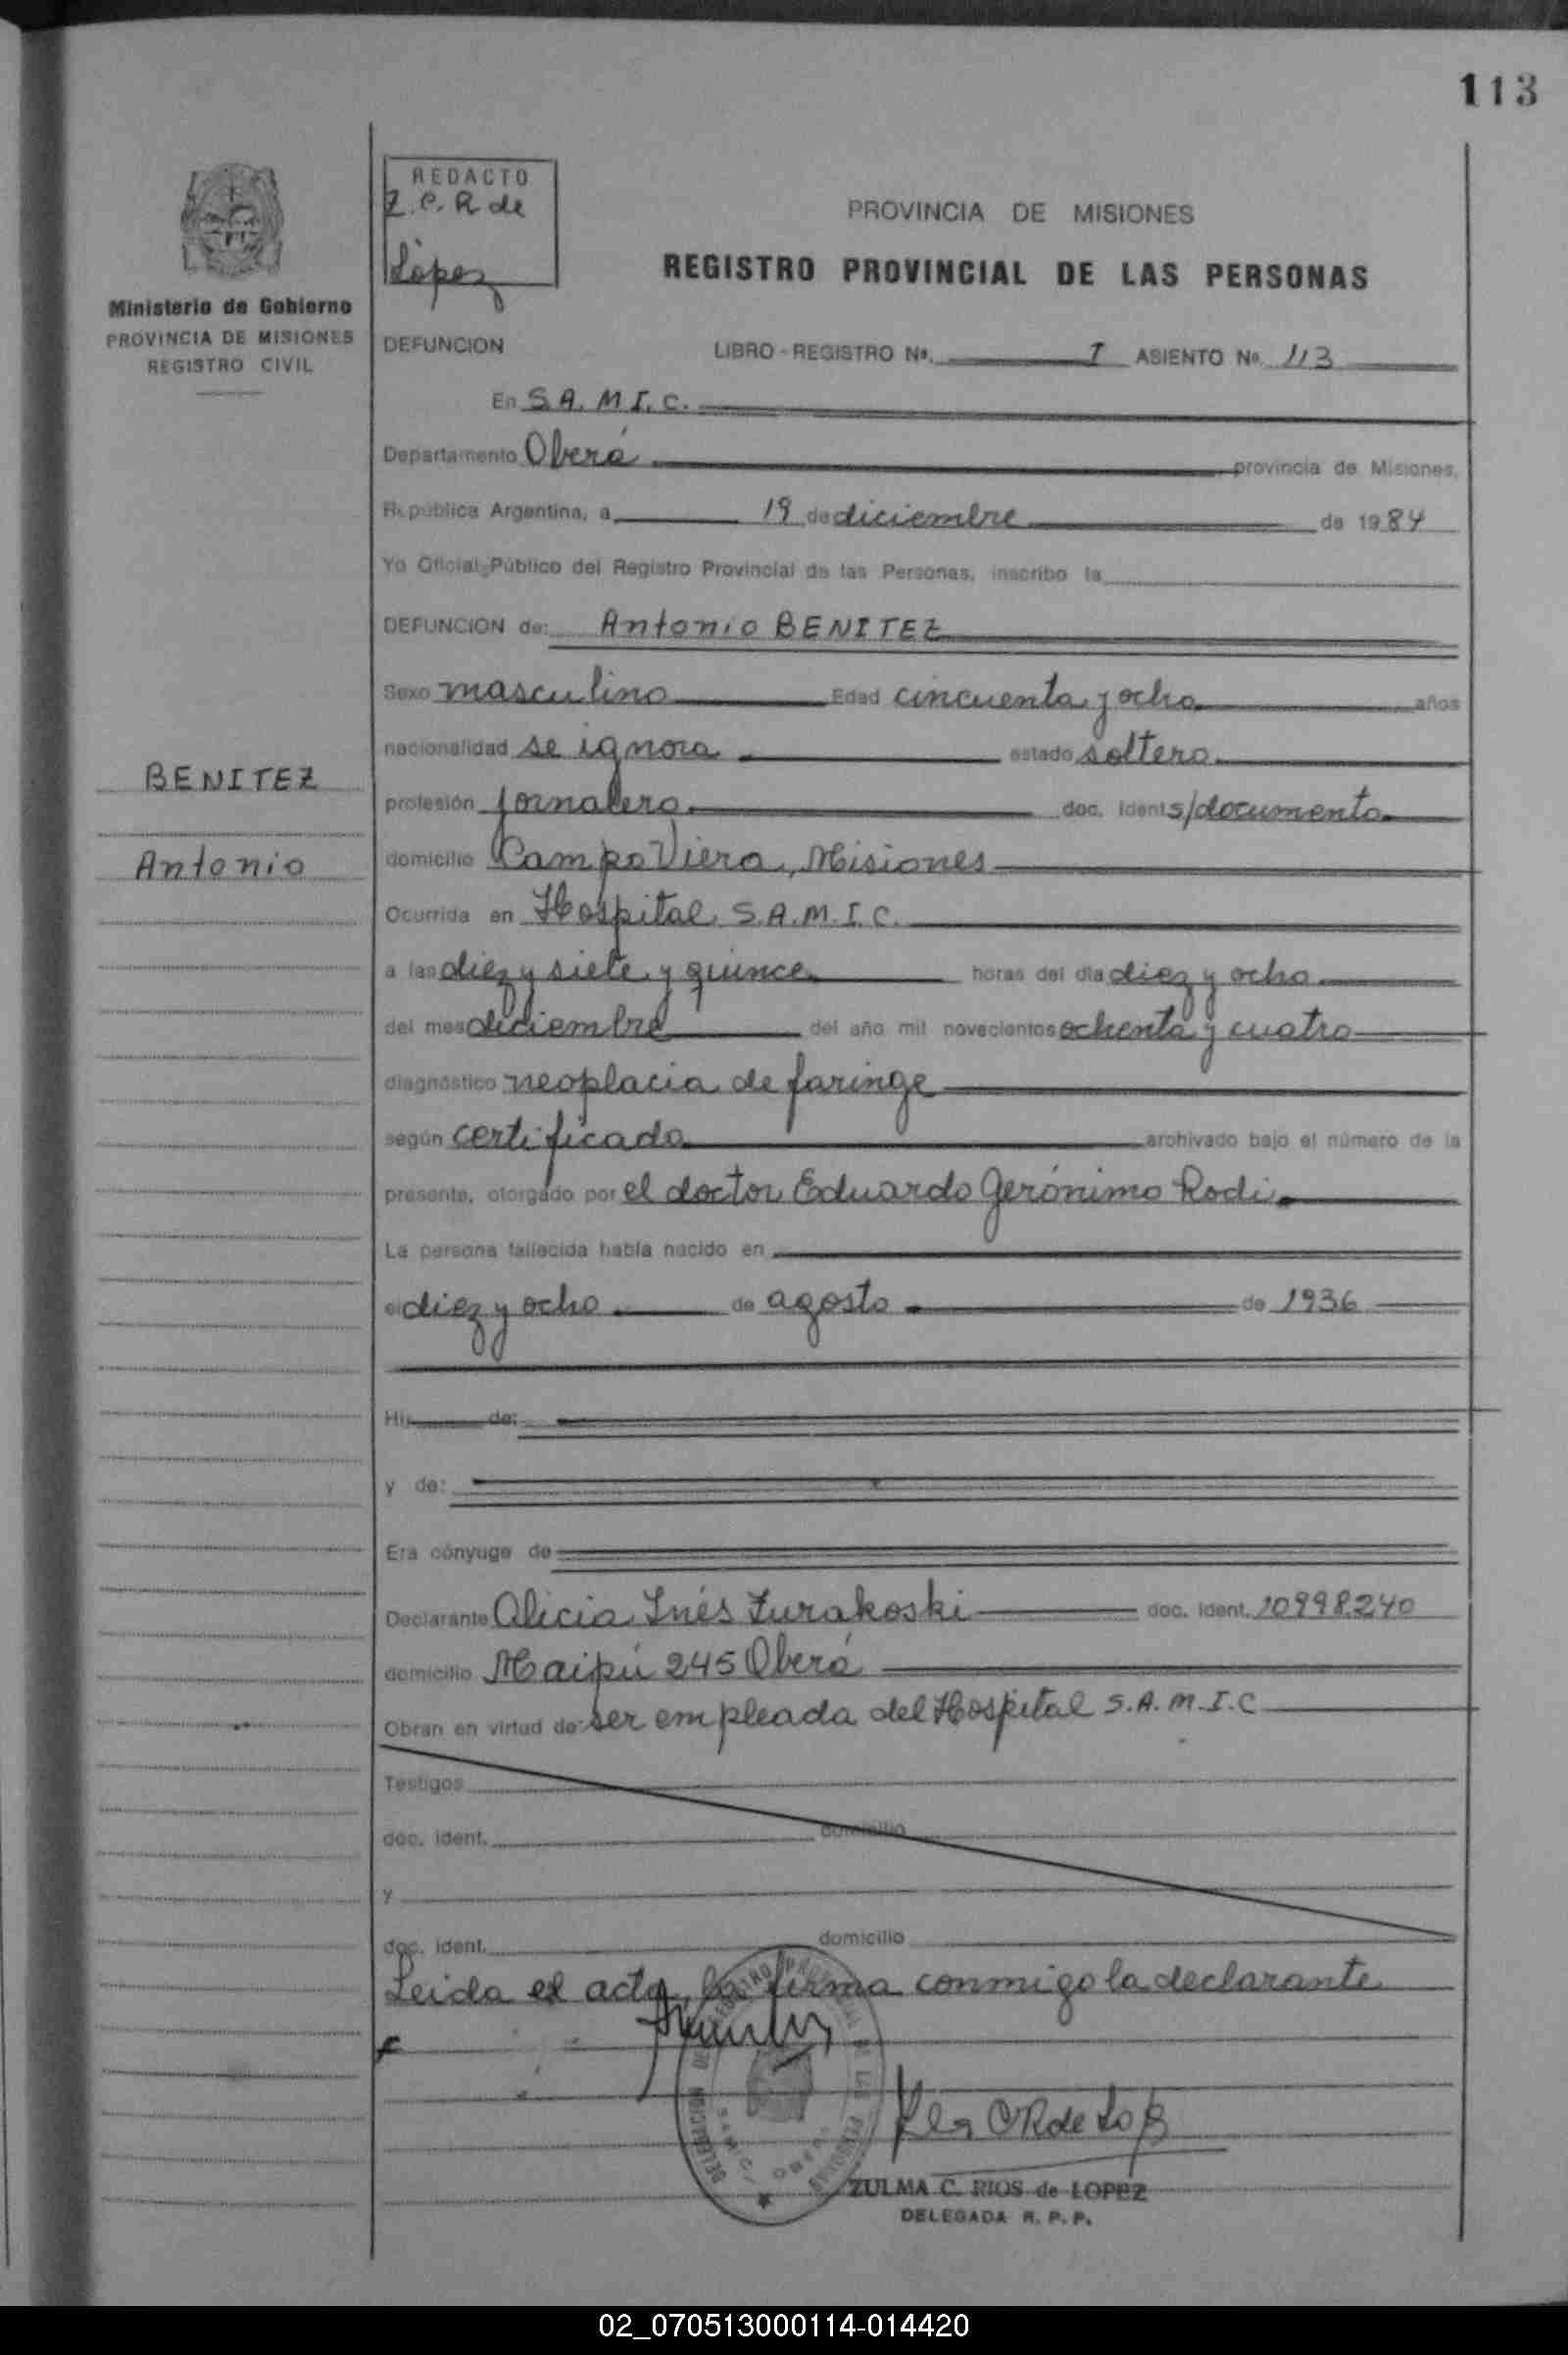 113
REDACTO
Z. C. R de
López
Ministerio de Gobierno
PROVINCIA DE MISIONES
REGISTRO CIVIL
PROVINCIA DE MISIONES
REGISTRO PROVINCIAL DE LAS PERSONAS
DEFUNCION LIBRO - REGISTRO Nº. I ASIENTO Nº. 113
En S.A.M.I.C.
Departamento Oberá provincia de Misiones,
República Argentina, a 19 de diciembre de 1984
Yo Oficial Público del Registro Provincial de las Personas, inscribo la
DEFUNCION de: Antonio BENITEZ
Sexo masculino Edad cincuenta y ocho años
nacionalidad se ignora estado soltero
BENITEZ
profesión jornalero doc. ident. s/documento
Antonio
domicilio Campo Viera, Misiones
Ocurrida en Hospital S.A.M.I.C.
a las diez y siete y quince horas del día diez y ocho
del mes diciembre del año mil novecientos ochenta y cuatro
diagnóstico neoplacia de faringe
según certificado archivado bajo el número de la
presente, otorgado por el doctor Eduardo Gerónimo Rodi
La persona fallecida había nacido en
el diez y ocho de agosto de 1936
Hi de:
y de:
Era cónyuge de
Declarante Alicia Inés Zurakoski doc. ident. 10998240
domicilio Maipú 245 Oberá
Obran en virtud de ser empleada del Hospital S.A.M.I.C
Testigos
doc. ident. domicilio
y
doc. ident. domicilio
Leida el acta, la firma conmigo la declarante
ZULMA C. RIOS de LOPEZ
DELEGADA R. P. P.
02_070513000114-014420